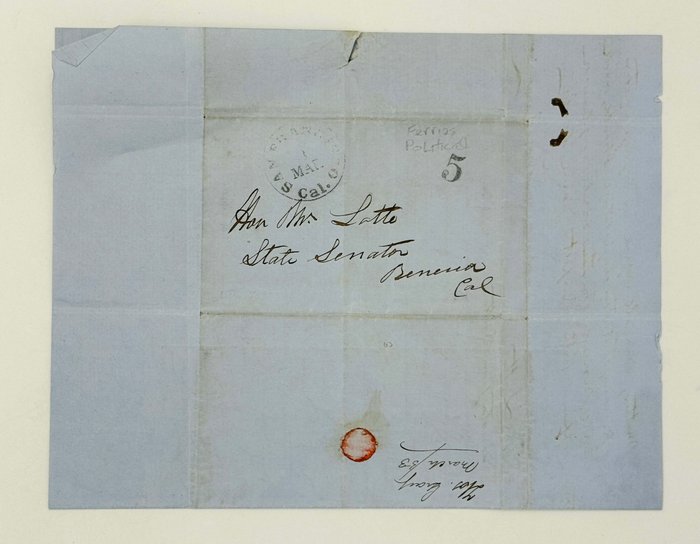 SAN FRANCISCO
1
MAR
Cal.
Ferries
Political
5
Hon Mr. Latte
State Senator
Benecia
Cal
Thos. Gray
March /53